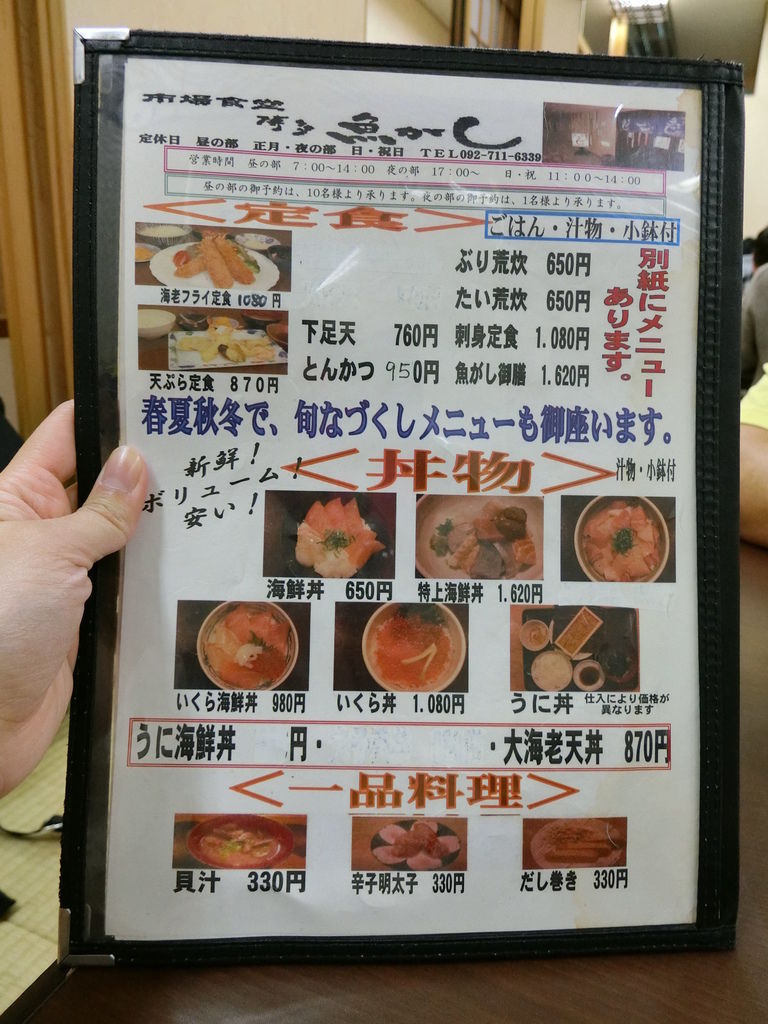 市場食堂
博多 魚がし
定休日 昼の部 正月・夜の部 日・祝日 TEL092-711-6339
営業時間 昼の部 7:00〜14:00 夜の部 17:00〜 日・祝 11:00〜14:00
昼の部の御予約は、10名様より承ります。夜の部の御予約は、1名様より承ります。
<定食>
ごはん・汁物・小鉢付
海老フライ定食 1080円
天ぷら定食 870円
ぶり荒炊 650円
たい荒炊 650円
下足天 760円 刺身定食 1.080円
とんかつ 950円 魚がし御膳 1.620円
別紙にメニュー
あります。
春夏秋冬で、旬なづくしメニューも御座います。
新鮮!
ボリューム!
安い!
<丼物>
汁物・小鉢付
海鮮丼 650円 特上海鮮丼 1.620円
いくら海鮮丼 980円 いくら丼 1.080円 うに丼 仕入により価格が
異なります
うに海鮮丼 円・ ・大海老天丼 870円
<一品料理>
貝汁 330円 辛子明太子 330円 だし巻き 330円